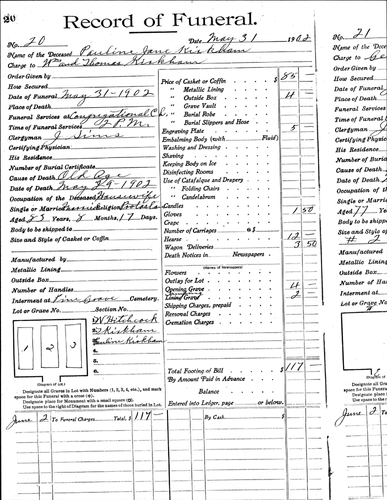 20
Record of Funeral.
No. 20 Date, May 31 1902
Name of the Deceased Pauline Jane Kirkham
Charge to Wm and Thomas Kirkham
Order Given by
How Secured
Date of Funeral May 31-1902
Place of Death
Funeral Services at Congregational Ch.
Time of Funeral Services 2 P.M.
Clergyman J Sims
Certifying Physician
His Residence
Number of Burial Certificate
Cause of Death Old Age
Date of Death May 29-1902
Occupation of the Deceased Housewife
Single or Married
Aged 83 Years, 8 Months, 17 Days.
Body to be shipped to
Size and Style of Casket or Coffin
Manufactured by
Metallic Lining
Outside Box
Number of Handles
Interment at Pine Grove Cemetery.
Lot or Grave No. Section No.
1 2 3
W Hitchcock
T Kirkham
Pauline Kirkham
(Diagram of Lot.)
Designate all Graves in Lot with Numbers (1, 2, 3, 4, etc.), and mark
space for this Funeral with a cross (+).
Designate place for Monument with a small square (□).
Use space to the right of Diagram for the names of those buried in Lot.
Price of Casket or Coffin $ 85 —
" Metallic Lining
" Outside Box 4
" Grave Vault
" Burial Robe
" Burial Slippers and Hose
Engraving Plate 5 —
Embalming Body (with Fluid)
Washing and Dressing
Shaving
Keeping Body on Ice
Disinfecting Rooms
Use of Catafalque and Drapery
" Folding Chairs
" Candelabrum
Candles
Gloves 1 50
Crape
Number of Carriages @ $
Hearse 12 —
Wagon Deliveries 3 50
Death Notices in Newspapers
(Names of Newspapers)
Flowers
Outlay for Lot
Opening Grave 4
Lining Grave 2
Shipping Charges, prepaid
Personal Charges
Cremation Charges
Total Footing of Bill $ 117 —
By Amount Paid in Advance
Balance
Entered into Ledger, page or below.
June 2 To Funeral Charges Total, $ 117 — By Cash $
21
No. 21
Name of the
Charge to
Order Given
How Secured
Date of Funeral
Place of Death
Funeral Services
Time of Funeral
Clergyman
Certifying
His Residence
Number of
Cause of Death
Date of Death
Occupation of
Single or
Aged 77 Years
Body to be
Size and Style
# 2
Manufactured
Metallic
Outside Box
Number of
Interment at
Lot or Grave
June 2